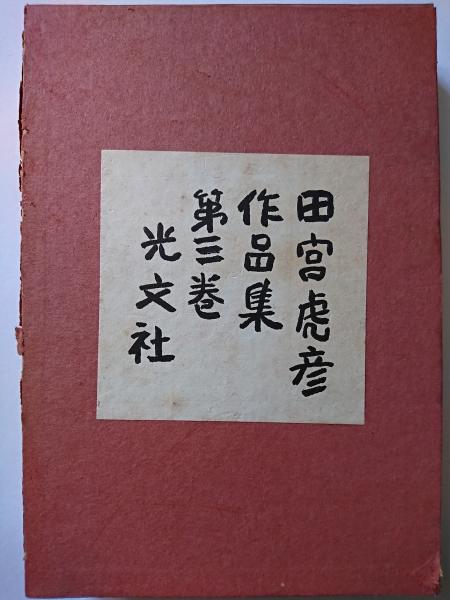 田宮虎彦
作品集
第三巻
光文社